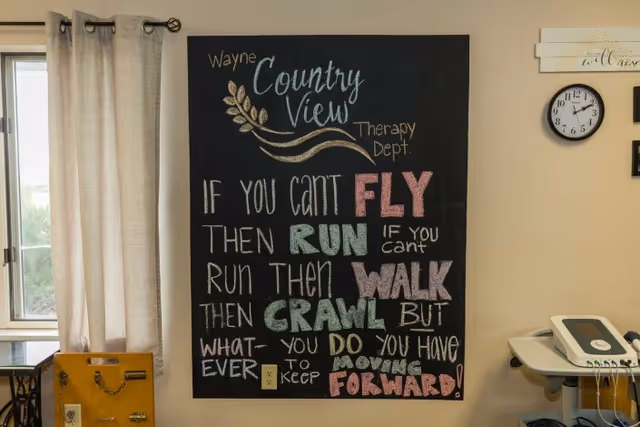 Wayne
Country
View
Therapy
Dept.
IF YOU can't FLY
THEN RUN IF YOU can't
RUN THEN WALK
THEN CRAWL BUT
WHAT- YOU DO YOU HAVE
EVER TO KEEP MOVING
FORWARD!
will rise